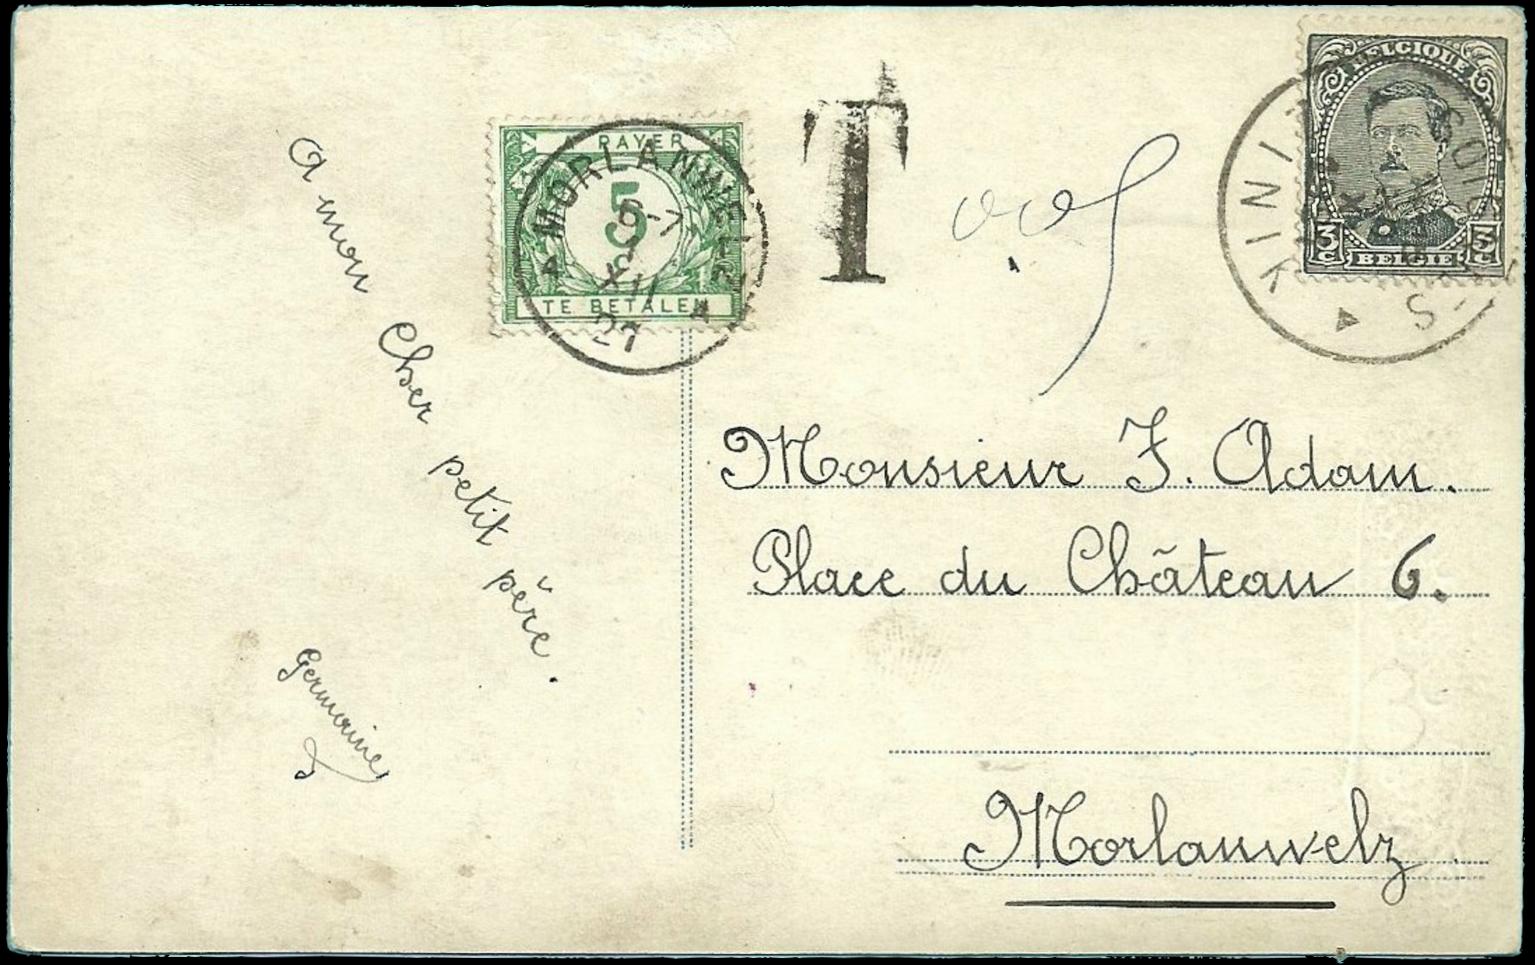 A mon cher petit père.
Germaine
A PAYER
5
TE BETALEN
MORLANWELZ
6-7
1
XII
27
T
BELGIQUE
3 C
3 C
BELGIE
Monsieur J. Adam.
Place du Château 6.
Morlanwelz